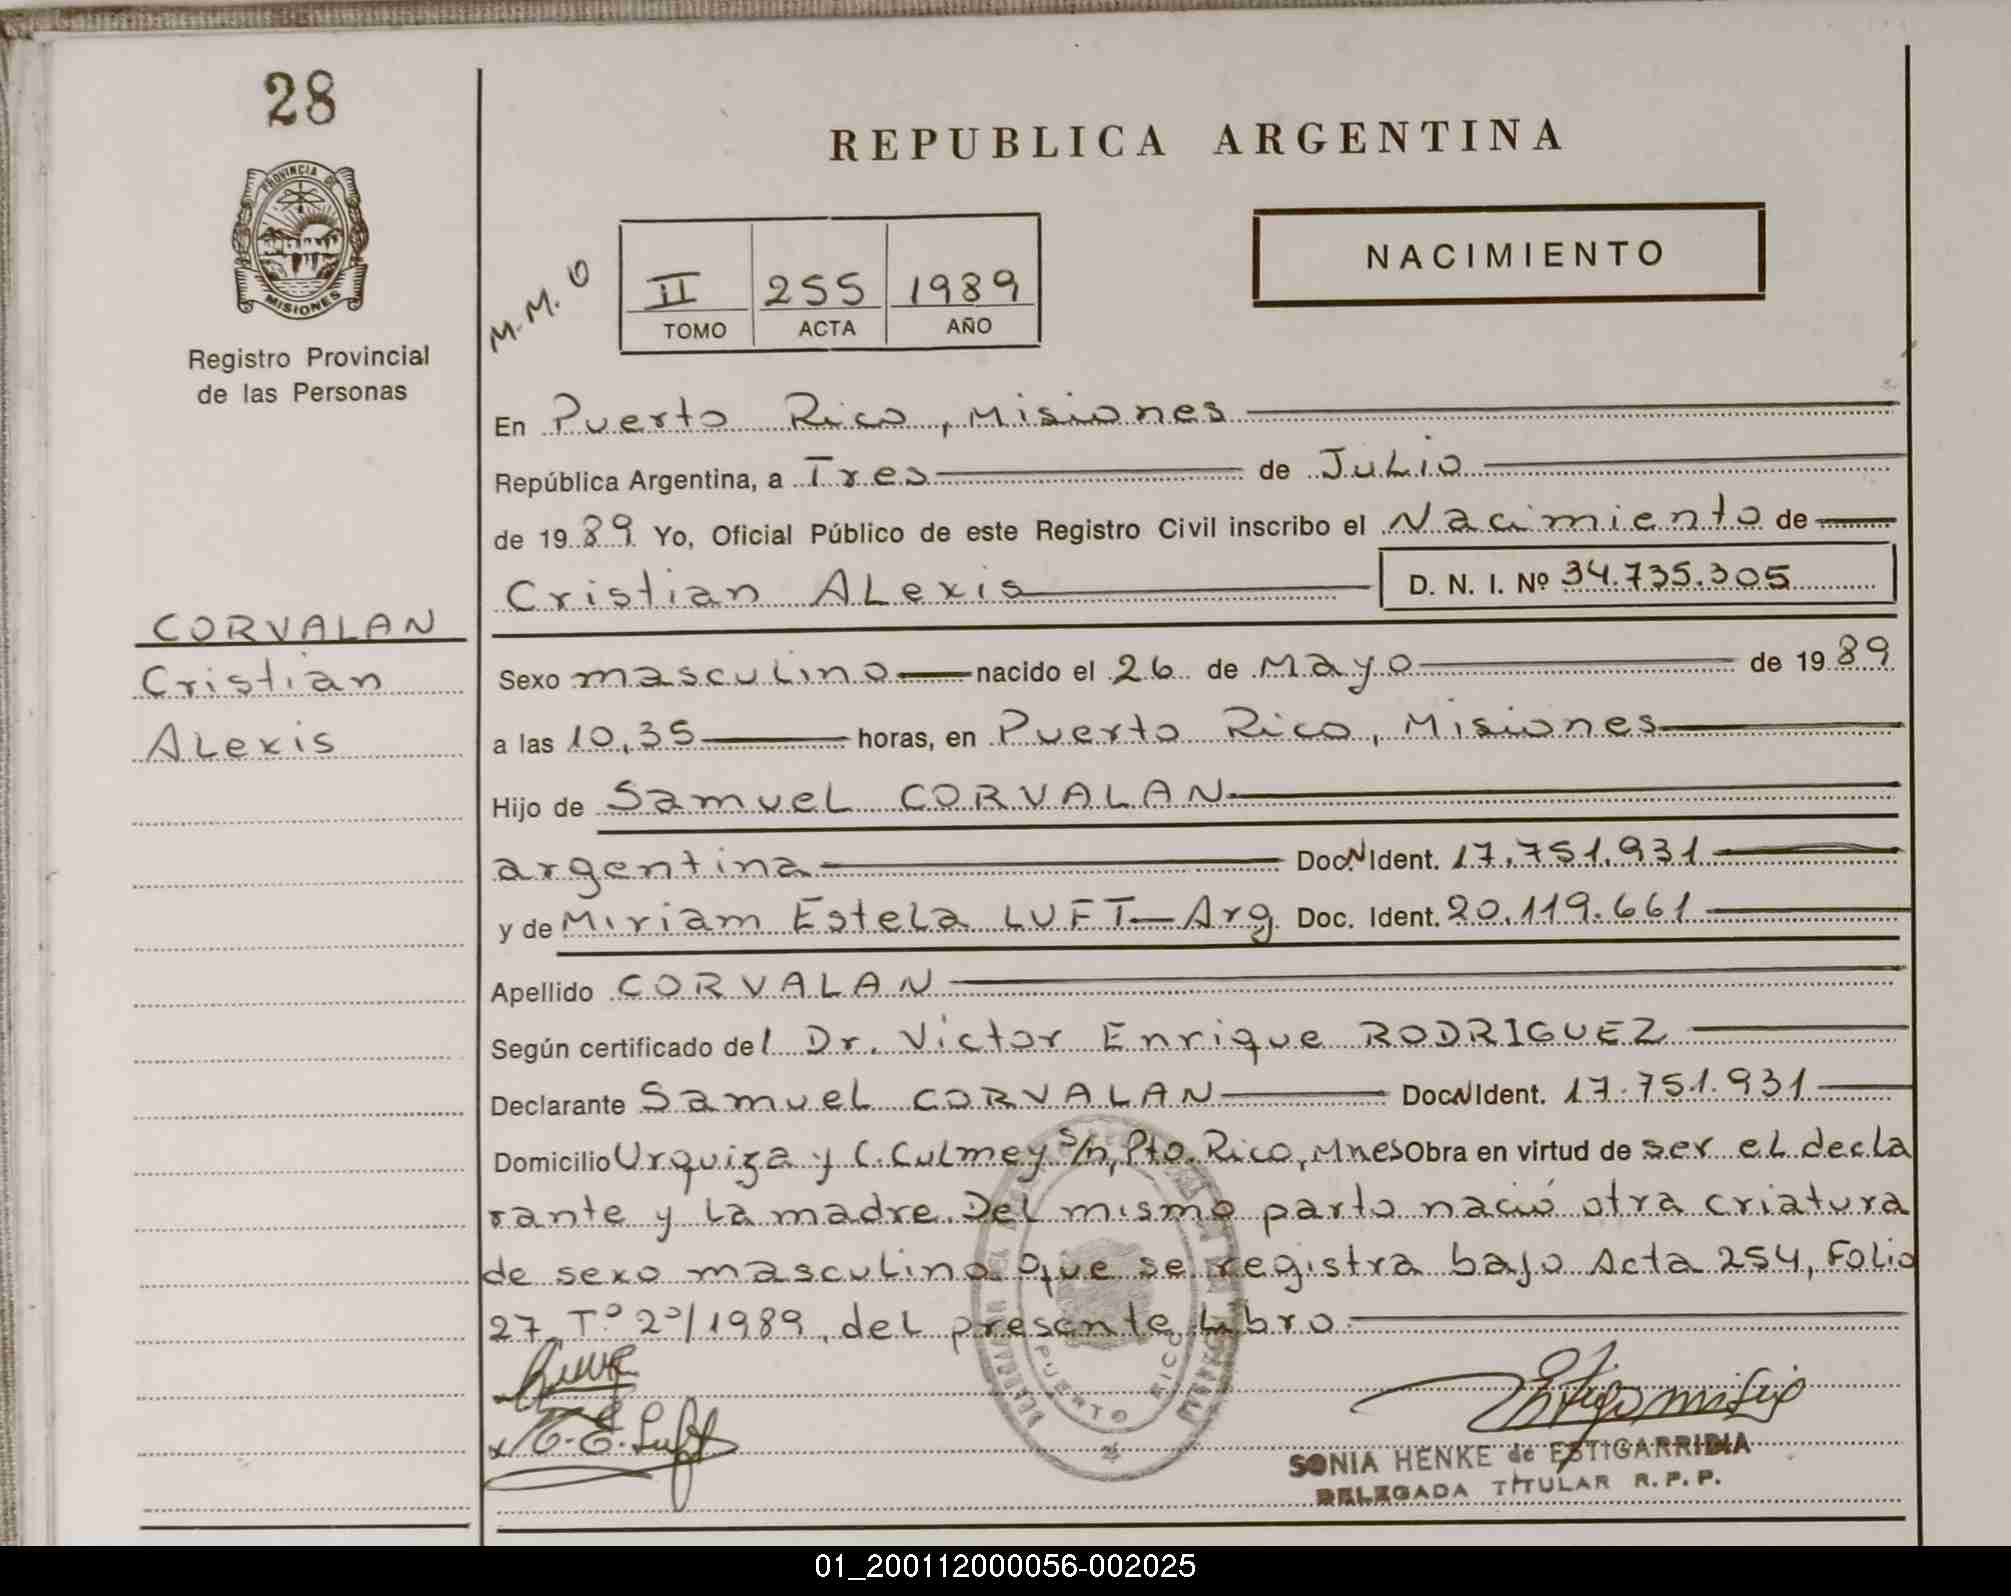 28
PROVINCIA DE
MISIONES
Registro Provincial
de las Personas
CORVALAN
Cristian
Alexis
REPUBLICA ARGENTINA
M.M.O
II 255 1989
TOMO ACTA AÑO
NACIMIENTO
En Puerto Rico, Misiones
República Argentina, a Tres de Julio
de 1989 Yo, Oficial Público de este Registro Civil inscribo el Nacimiento de
Cristian Alexis D. N. I. Nº 34.735.305
Sexo masculino nacido el 26 de Mayo de 1989
a las 10,35 horas, en Puerto Rico, Misiones
Hijo de Samuel CORVALAN
argentina Doc.N Ident. 17.751.931
y de Miriam Estela LUFT Arg Doc. Ident. 20.119.661
Apellido CORVALAN
Según certificado del Dr. Victor Enrique RODRIGUEZ
Declarante Samuel CORVALAN Doc.N Ident. 17.751.931
Domicilio Urquiza y C. Culmey s/n, Pto. Rico, Mnes Obra en virtud de ser el decla
rante y la madre. Del mismo parto nació otra criatura
de sexo masculino que se registra bajo Acta 254, Folio
27, Tº 2º/1989, del presente Libro
PUERTO RICO
M.E.Luft
SONIA HENKE de ESTIGARRIBIA
DELEGADA TITULAR R.P.P.
01_200112000056-002025